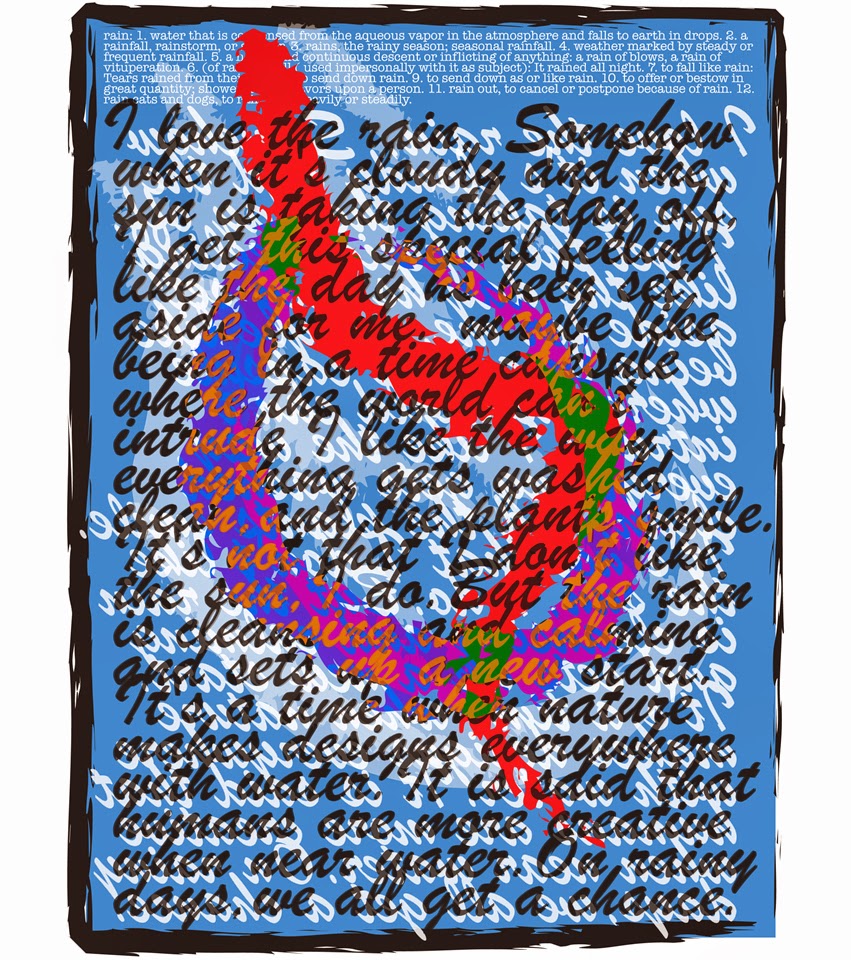 rain: 1. water that is condensed from the aqueous vapor in the atmosphere and falls to earth in drops. 2. a
rainfall, rainstorm, or 3. rains, the rainy season; seasonal rainfall. 4. weather marked by steady or
frequent rainfall. 5. a continuous descent or inflicting of anything: a rain of blows, a rain of
vituperation. 6. (of used impersonally with it as subject): It rained all night. 7. to fall like rain:
Tears rained from send down rain. 9. to send down as or like rain. 10. to offer or bestow in
great quantity; upon a person. 11. rain out, to cancel or postpone because of rain. 12.
rain cats and dogs, to heavily or steadily.
I love the rain. Somehow
when it's cloudy and the
sun is taking the day off,
I get this special feeling
like the day has been set
aside for me. maybe like
being in a time capsule
where the world can't
intrude. I like the way
everything gets washed
clean, and the plants smile.
It's not that I don't like
the sun, I do. But the rain
is cleansing and calming
and sets up a new start.
It's a time when nature
makes designs everywhere
with water. It is said that
humans are more creative
when near water. On rainy
days, we all get a chance.